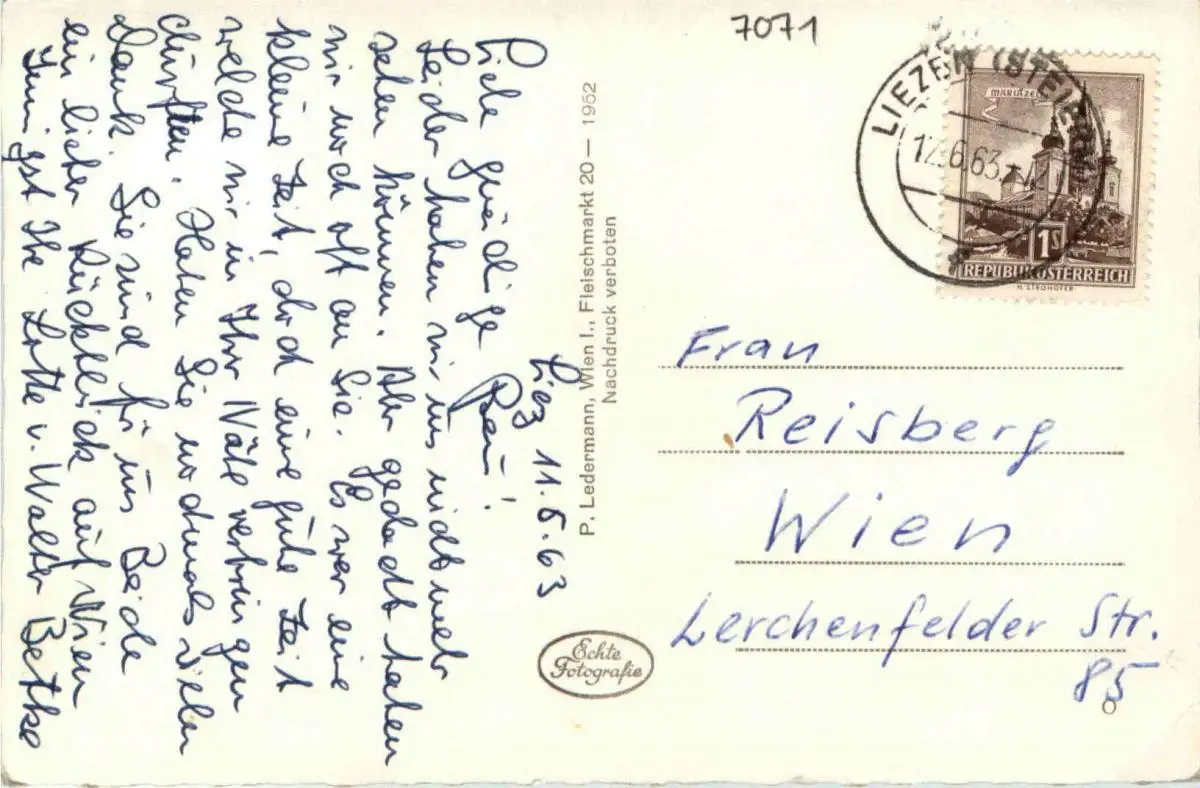 7071
LIEZEN (STEIERM
12.6.63
MARIAZELL
1S
REPUBLIK ÖSTERREICH
H. STROHOFER
Liez 11.6.63
Liebe gnädige Frau!
Leider haben wir uns nicht mehr
sehen können. Aber gedacht haben
wir noch oft an Sie. Es war eine
kleine Zeit, doch eine gute Zeit
welche wir in Ihrer Nähe verbringen
durften. Haben Sie nochmals vielen
Dank. Sie sind für uns Beide
ein lieber Rückblick auf Wien
Innigst Ihre Lotte u. Walter Betke
P. Ledermann, Wien I., Fleischmarkt 20 — 1962
Nachdruck verboten
Echte
Fotografie
Frau
Reisberg
Wien
Lerchenfelder Str.
85